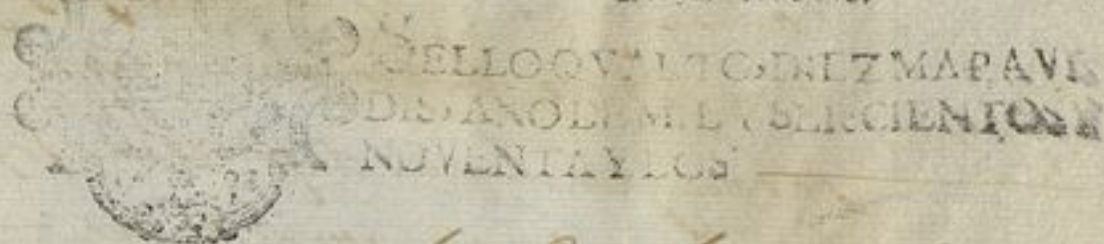 SELLO QVARTO, DIEZ MARAVE
DIS, AÑO DE MIL Y SEISCIENTOS Y
NOVENTA Y DOS